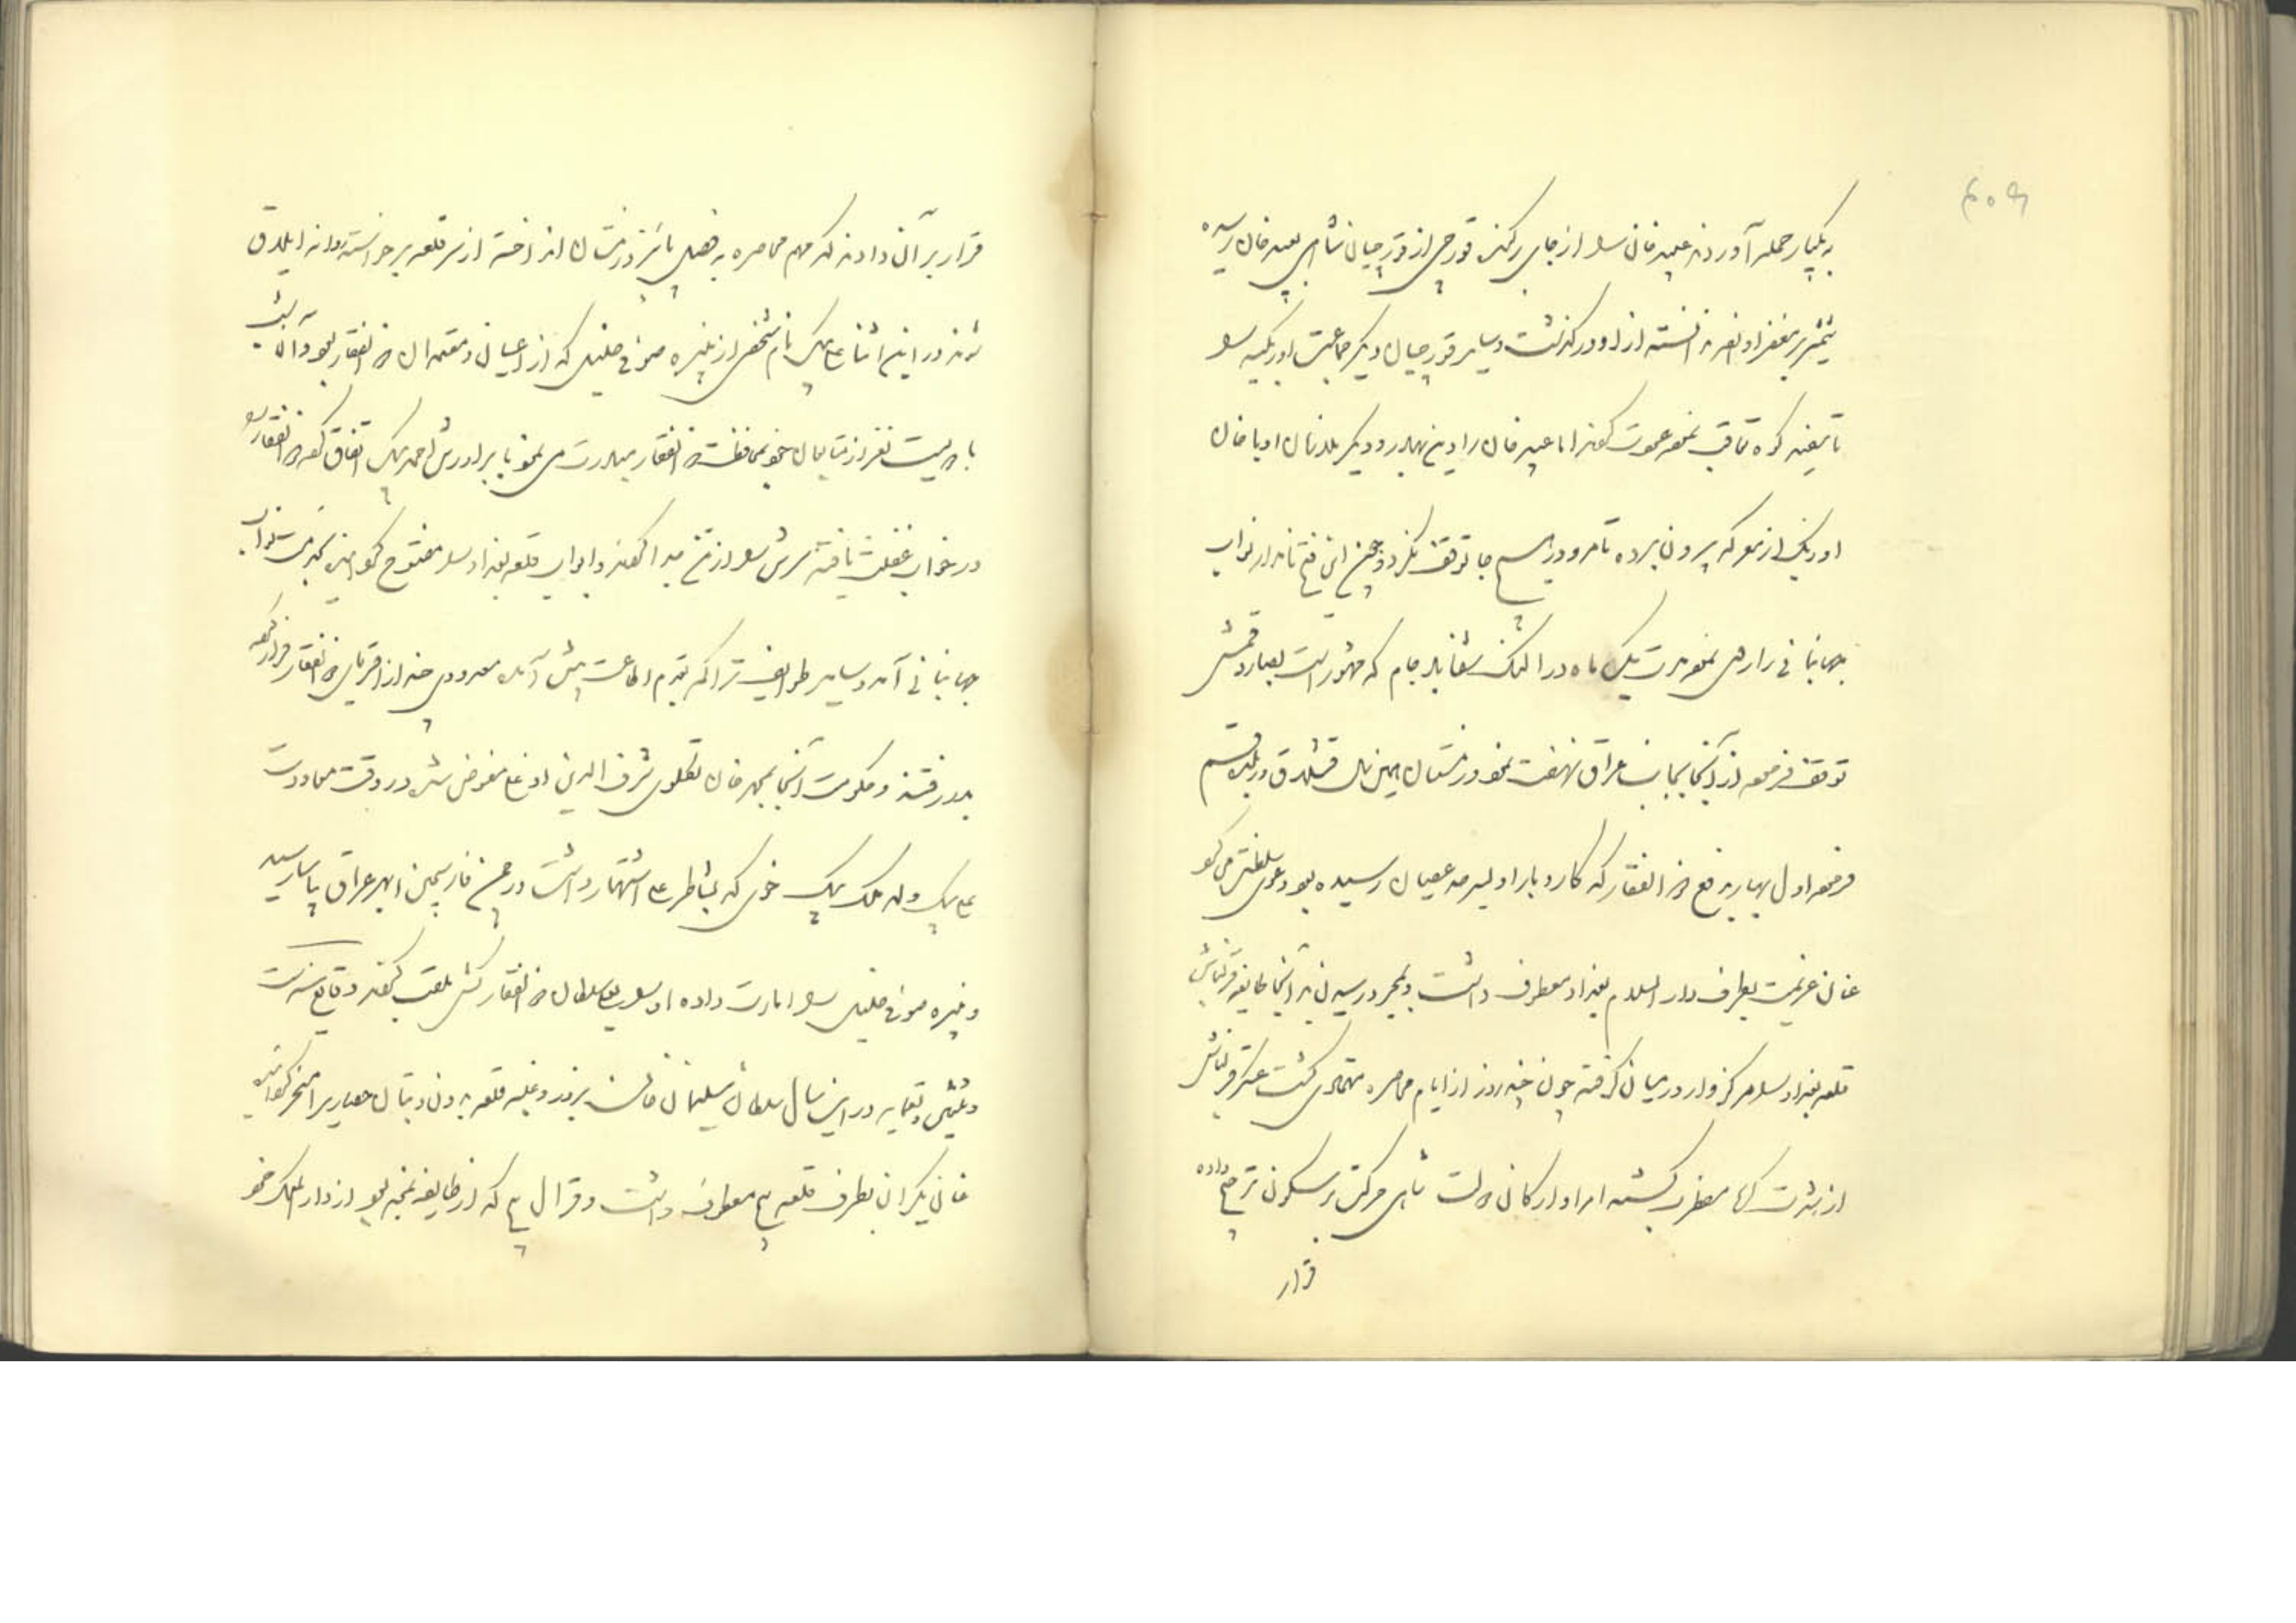 به یکبار حمله آوردند عبید خان را از جای برکنند قورچی از قورچیان شاهی بعبید خان رسیده
شمشیر بر مغفر او نفر ندانسته از او درگذشت و سایر قورچیان دیگر جماعت اوزبکیه را
تعاقب نموده عودت کردند اما عبید خان را دین بهادر و دیگر ملازمان او با خان
اوزبک از معرکه بیرون برده تا مرو در هیچ جا توقف نکرد و چون این فتح نامدار نواب
جهانبانی را روی نمود مدت یک ماه در النک بلاد جام که مشهور است
توقف فرموده از آنجا بجانب عراق نهضت نمود زمستان این سال قشلاق در بلده قم
فرموده اول بهار به دفع ذو الفقار که کار و بار او بسرحد عصیان رسیده بود دعوی سلطنت می کرد
عنان عزیمت بطرف دار السلام بغداد معطوف داشت و بمجرد رسیدن به آنجا طایفه قزلباش
قلعه بغداد را مرکزوار در میان گرفته چون چند روز از ایام محاصره متمادی گشت عسکر قزلباش
از شدت گرما مضطرب گشته امرا و ارکان دولت شاهی حرکت بر سکون ترجیح داده
قرار
قرار بر آن دادند که مهم محاصره به فصل پائیز و زمستان انداخته از سر قلعه برخواسته روانه ایلاق
شوند در این اثنا علی بیک نام شخصی از نبیره صوفی خلیل که از اعیان و معتمدان ذو الفقار بود و آن شب
با دویست نفر از متابعان خود بمحافظت ذو الفقار مبادرت می نمود با برادرش احمد بیک اتفاق کرده ذو الفقار را
در خواب غفلت یافته سرش را از تن جدا کردند و ابواب قلعه بغداد را مفتوح کرده بخدمت نواب
جهانبانی آمد و سایر طوایف تراکمه بقدم اطاعت پیش آمده معدودی چند از اقربای ذو الفقار فرار کرده
بدر رفتند و حکومت آنجا بمحمد خان تکلوی شرف الدین اوغلی مفوض شد در وقت معاودت
علی بیک ولد ملک بیک خوی که بشاطر علی اشتهار داشت در چمن فارسجین ابهر عراق بیاسا رسید
و نبیره صوفی خلیل را امارت داده او را بعلی سلطان ذو الفقار کش ملقب کردند وقایع سنه ست
و ثلثین و تسعمایه در این سال سلطان سلیمان خان بزور و غلبه قلعه بدون و حصار مسخر گردانیده
عنان یکران بطرف قلعه بج معطوف داشت و قرال بج که از طایفه نمچه بود از دار الملک خود